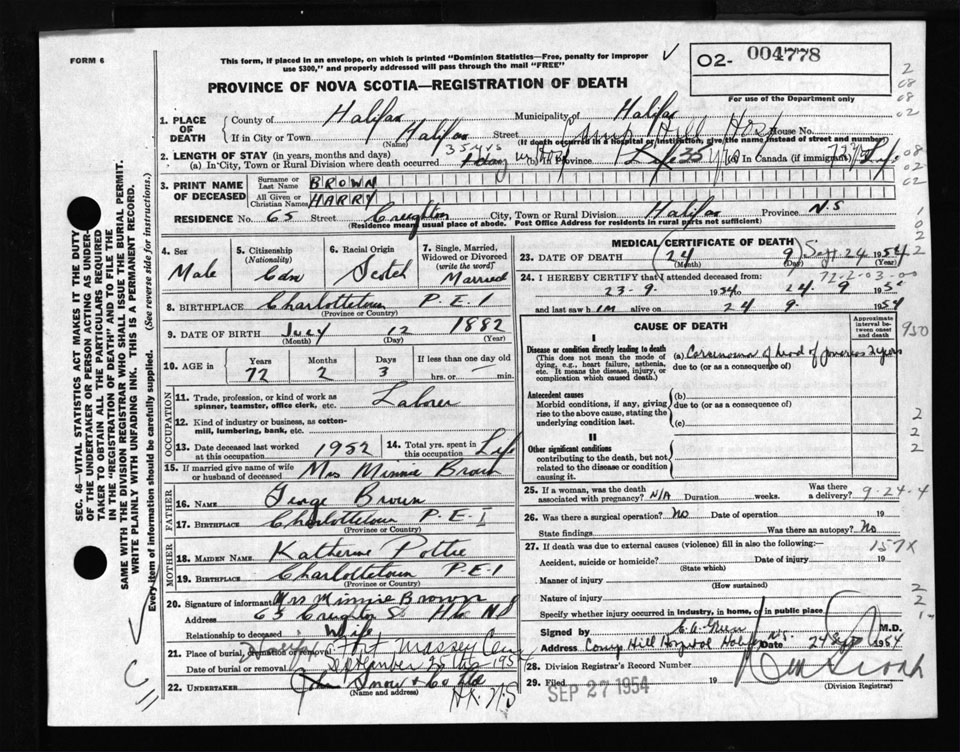 FORM 6
This form, if placed in an envelope, on which is printed "Dominion Statistics—Free, penalty for improper
use $300," and properly addressed will pass through the mail "FREE"
02- 004778
PROVINCE OF NOVA SCOTIA—REGISTRATION OF DEATH
For use of the Department only
1. PLACE OF DEATH
County of Halifax Municipality of Halifax
If in City or Town Halifax Street Camp Hill Hosp House No.
(Name) (If death occurred in a hospital or institution, give the name instead of street and number)
2. LENGTH OF STAY (in years, months and days) 35 yrs
(a) In City, Town or Rural Division where death occurred 1 day in Province 35 yrs (c) In Canada (if immigrant) Life
3. PRINT NAME OF DECEASED
Surname or Last Name BROWN
All Given or Christian Names HARRY
RESIDENCE No. 65 Street Creighton City, Town or Rural Division Halifax Province N.S
(Residence means usual place of abode. Post Office Address for residents in rural parts not sufficient)
4. Sex Male
5. Citizenship (Nationality) Cdn
6. Racial Origin Scotch
7. Single, Married, Widowed or Divorced (write the word) Married
8. BIRTHPLACE Charlottetown P.E.I
(Province or Country)
9. DATE OF BIRTH July 12 1882
(Month) (Day) (Year)
10. AGE in Years 72 Months 2 Days 3 If less than one day old hrs. or min.
OCCUPATION
11. Trade, profession, or kind of work as spinner, teamster, office clerk, etc. Laborer
12. Kind of industry or business, as cotton-mill, lumbering, bank, etc.
13. Date deceased last worked at this occupation 1952
14. Total yrs. spent in this occupation Life
15. If married give name of wife or husband of deceased Mrs Minnie Brown
FATHER
16. NAME George Brown
17. BIRTHPLACE Charlottetown P.E.I
(Province or Country)
MOTHER
18. MAIDEN NAME Katherine Pottie
19. BIRTHPLACE Charlottetown P.E.I
(Province or Country)
20. Signature of informant Mrs Minnie Brown
Address 65 Creighton St Hfx NS
Relationship to deceased Wife
21. Place of burial, cremation or removal Fort Massey Cem
Date of burial or removal September 1954
22. UNDERTAKER John Snow & Co Ltd
(Name and address)
Hfx N.S
MEDICAL CERTIFICATE OF DEATH
23. DATE OF DEATH 24 9 Sept. 24 1954
(Month) (Day) (Year)
72-2-03-00
24. I HEREBY CERTIFY that I attended deceased from:
23-9. 1954 to 24. 9 195
and last saw h IM alive on 24 9 1954
CAUSE OF DEATH
Approximate interval between onset and death
I
Disease or condition directly leading to death
This does not mean the mode of dying, e.g., heart failure, asthenia, etc. It means the disease, injury, or complication which caused death.
(a) Carcinoma of head of pancreas 2 years
due to (or as a consequence of)
Antecedent causes
Morbid conditions, if any, giving rise to the above cause, stating the underlying condition last.
(b)
due to (or as a consequence of)
(c)
II
Other significant conditions
contributing to the death, but not related to the disease or condition causing it.
25. If a woman, was the death associated with pregnancy? N/A Duration weeks. Was there a delivery? 9-24-4
26. Was there a surgical operation? No Date of operation 19
State findings Was there an autopsy? No
27. If death was due to external causes (violence) fill in also the following:— 157X
Accident, suicide or homicide? Date of injury 19
(State which)
Manner of injury
(How sustained)
Nature of injury
Specify whether injury occurred in industry, in home, or in public place
Signed by M.D.
Address Camp Hill Hospital Halifax N.S. Date 24 Sept 1954
28. Division Registrar's Record Number
29. Filed SEP 27 1954
(Division Registrar)
SEC. 46—VITAL STATISTICS ACT MAKES IT THE DUTY
OF THE UNDERTAKER OR PERSON ACTING AS UNDER-
TAKER TO OBTAIN ALL THE PARTICULARS REQUIRED
IN THE "REGISTRATION OF DEATH" AND TO FILE THE
SAME WITH THE DIVISION REGISTRAR WHO SHALL ISSUE THE BURIAL PERMIT.
WRITE PLAINLY WITH UNFADING INK. THIS IS A PERMANENT RECORD.
Every item of information should be carefully supplied. (See reverse side for instructions.)